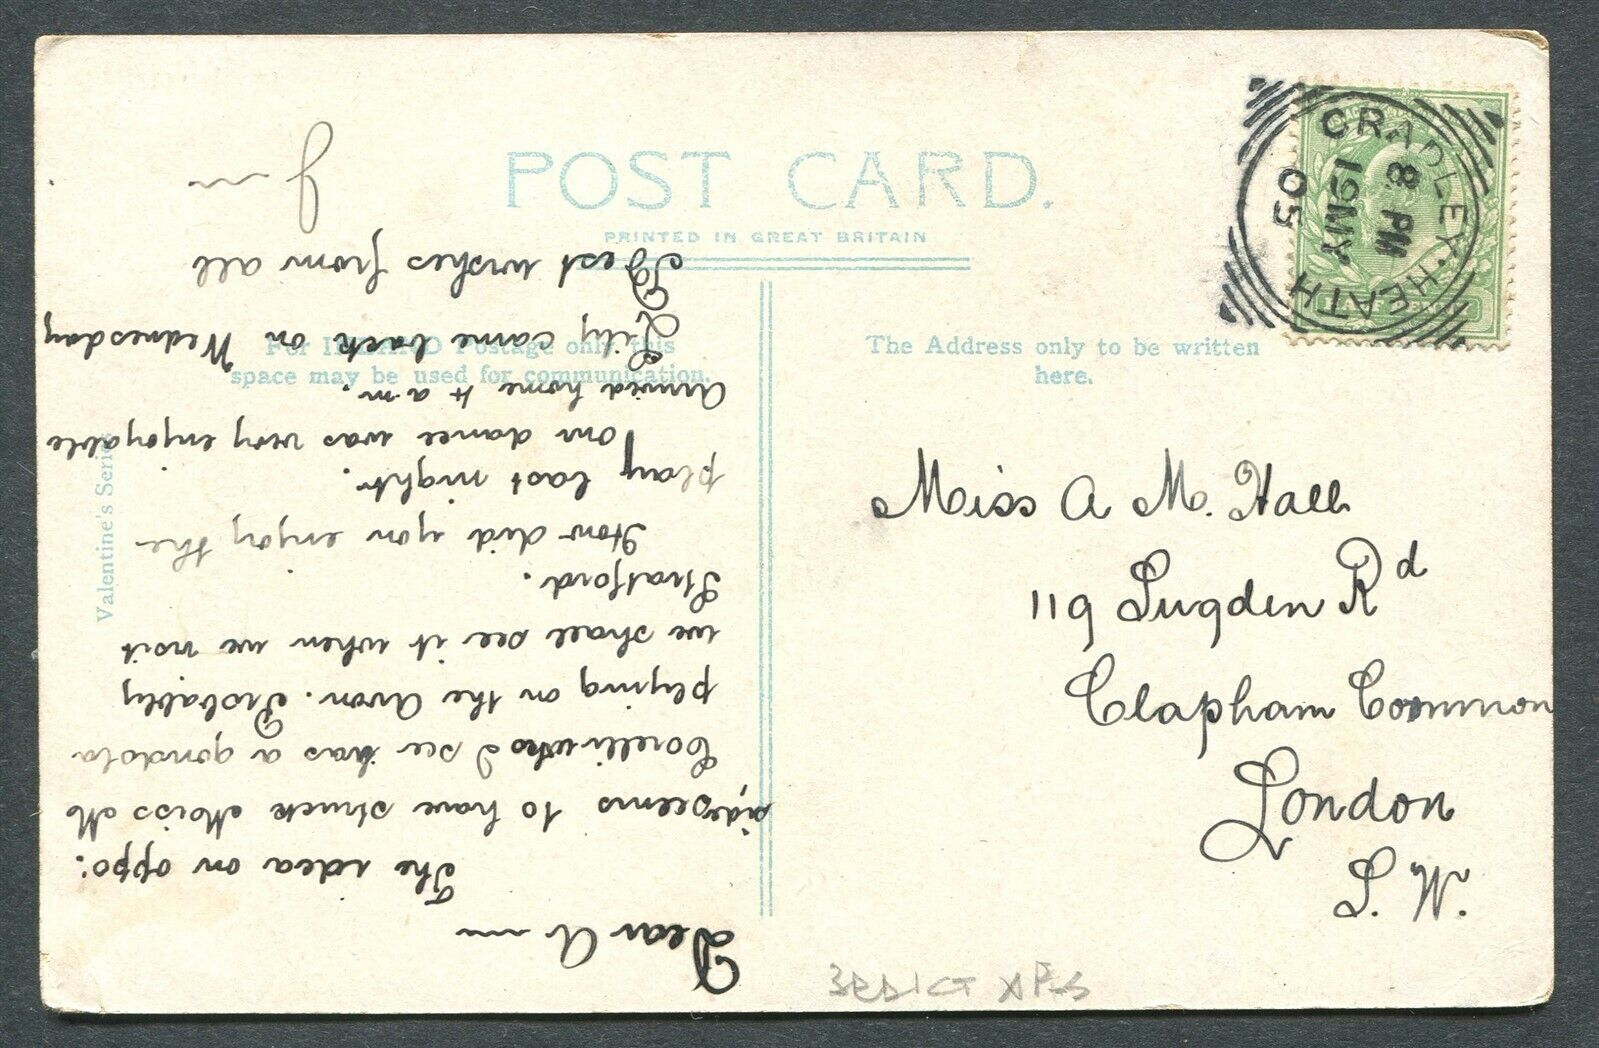 POST CARD.
PRINTED IN GREAT BRITAIN
For INLAND Postage only this
space may be used for communication.
The Address only to be written
here.
Valentine's Series
CRADLEY·HEATH
8 PM
19 MY
05
Miss A M. Hall
119 Sugden Rd
Clapham Common
London
S. W.
Dear A
The idea on oppo:
side seems to have struck Miss M
Corelli who I see has a gondola
plying on the Avon. Probably
we shall see it when we visit
Stratford.
How did you enjoy the
play last night.
Our dance was very enjoyable
Arrived home 4 a.m.
Lily came back on Wednesday
Best wishes from all
J